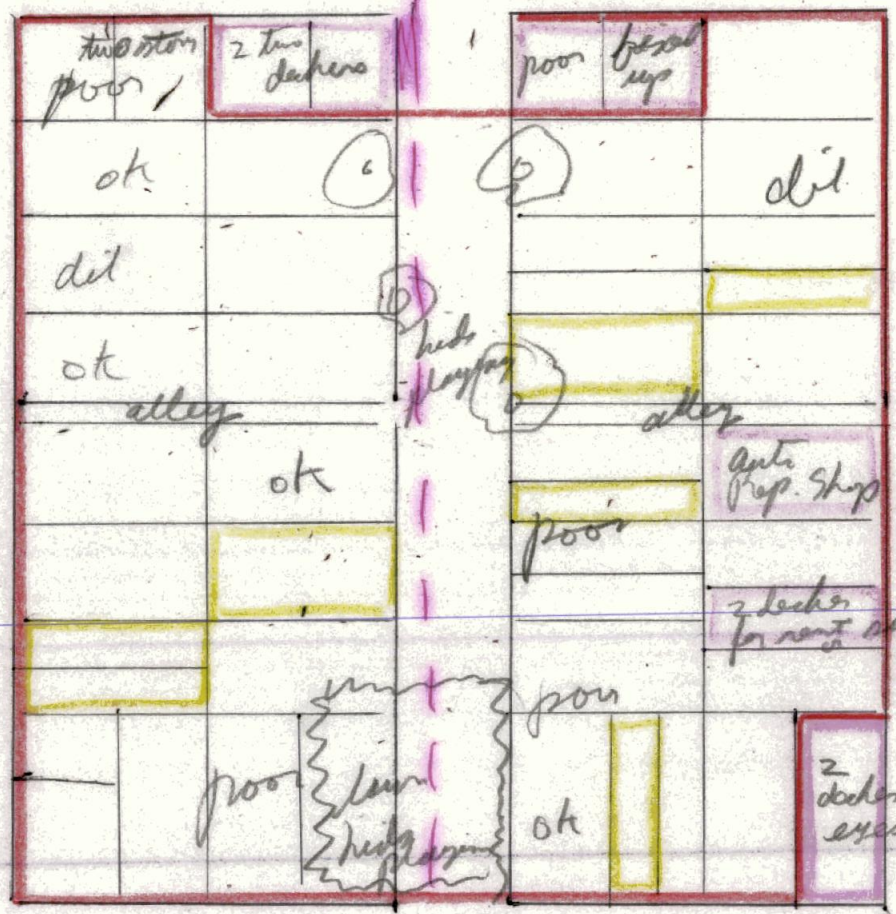 two story
poor
2 two
deckers
poor
fixed
up
ok
dil
dil
ok
kids
playing
alley
alley
ok
auto
Rep. Shop
poor
2 decker
for rent
poor
poor
lawn
kids
playing
ok
2
decker